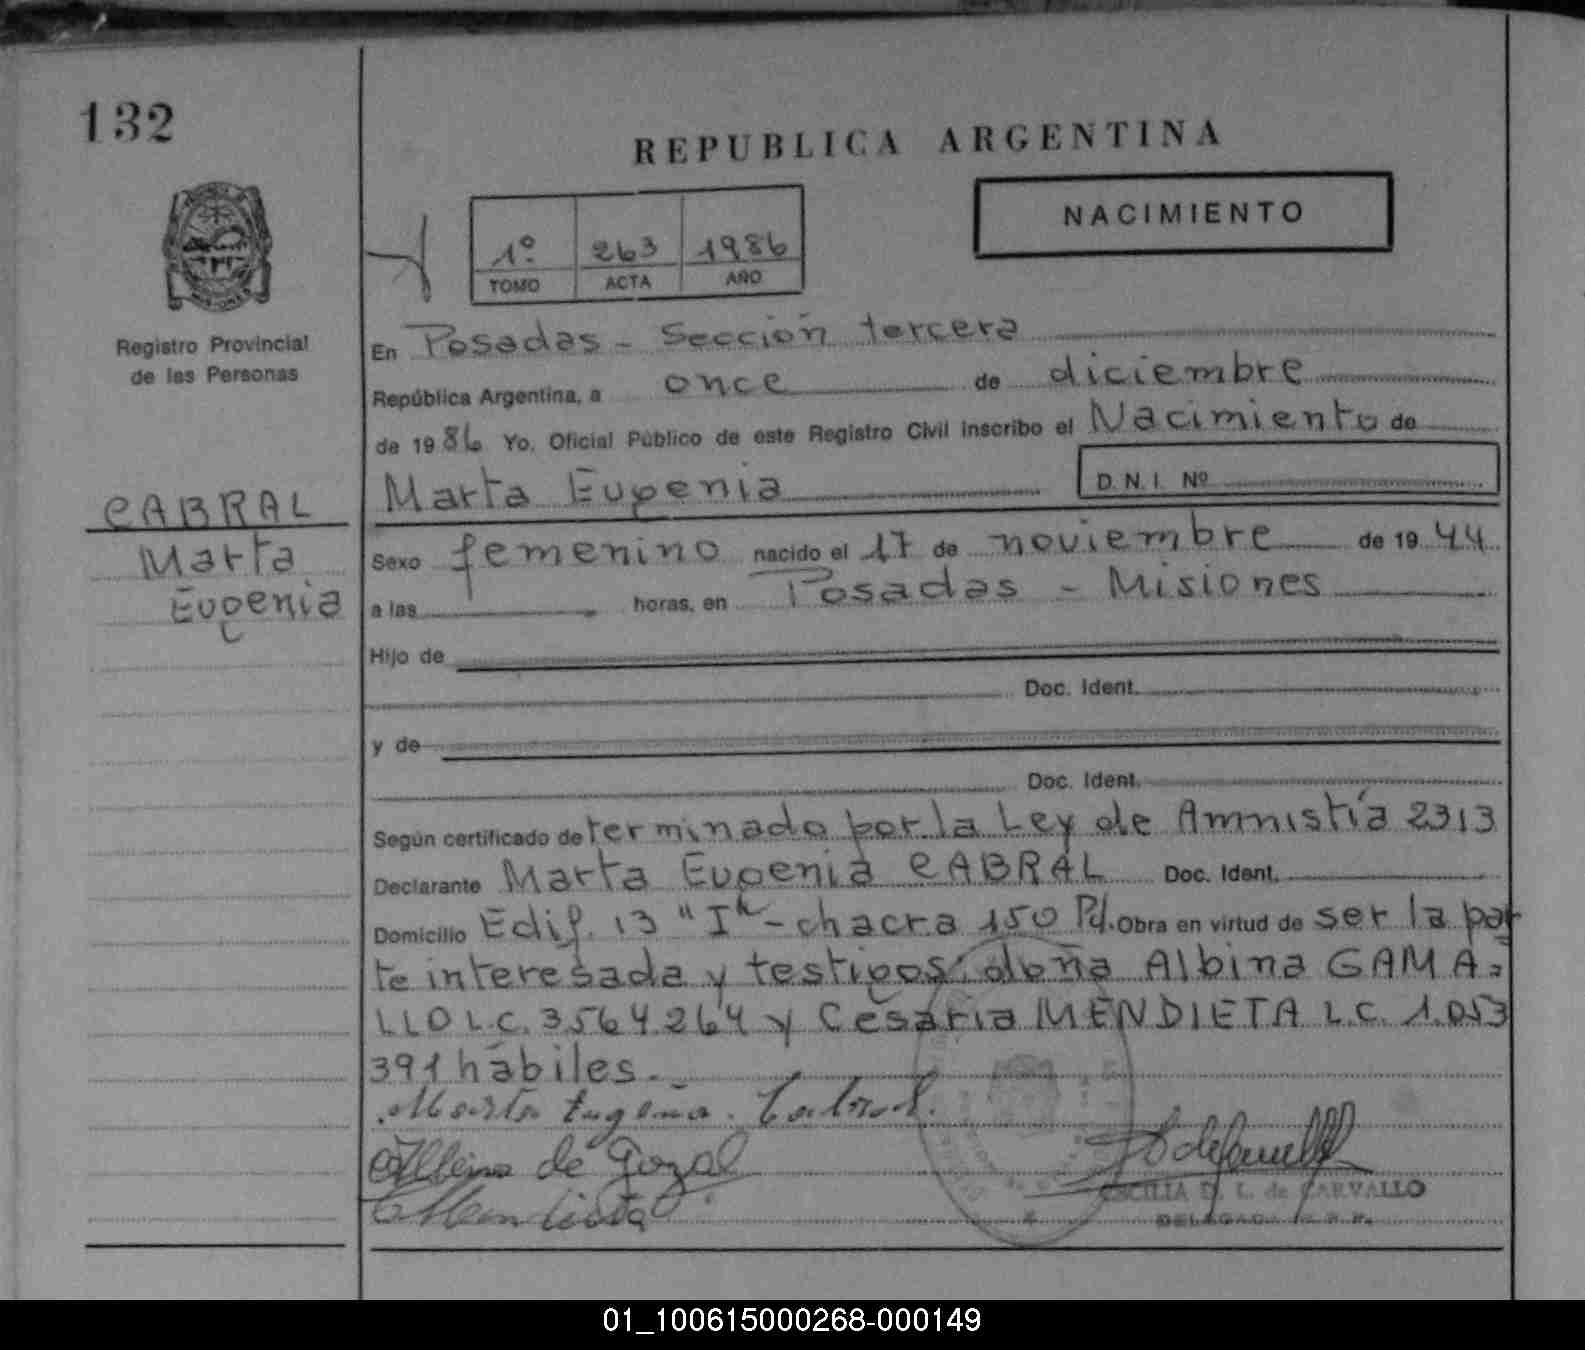 132
REPUBLICA ARGENTINA
NACIMIENTO
1º 263 1986
TOMO ACTA AÑO
Registro Provincial
de las Personas
CABRAL
Marta
Eugenia
En Posadas - Sección tercera
República Argentina, a once de diciembre
de 1986 Yo, Oficial Público de este Registro Civil inscribo el Nacimiento de
Marta Eugenia D.N.I. Nº
Sexo femenino nacido el 17 de noviembre de 1944
a las horas, en Posadas - Misiones
Hijo de
Doc. Ident.
y de
Doc. Ident.
Según certificado determinado por la Ley de Amnistía 2313
Declarante Marta Eugenia CABRAL Doc. Ident.
Domicilio Edif. 13 "I" - chacra 150 Pd. Obra en virtud de ser la par
te interesada y testigos: doña Albina GAMA=
LLO L.C. 3564264 y Cesaria MENDIETA L.C. 1.053
391 hábiles.
Marta Eugenia Cabral.
Albina de
C Mendieta
CECILIA D. L. de CARVALLO
DELEGADA R.P.P.
01_100615000268-000149